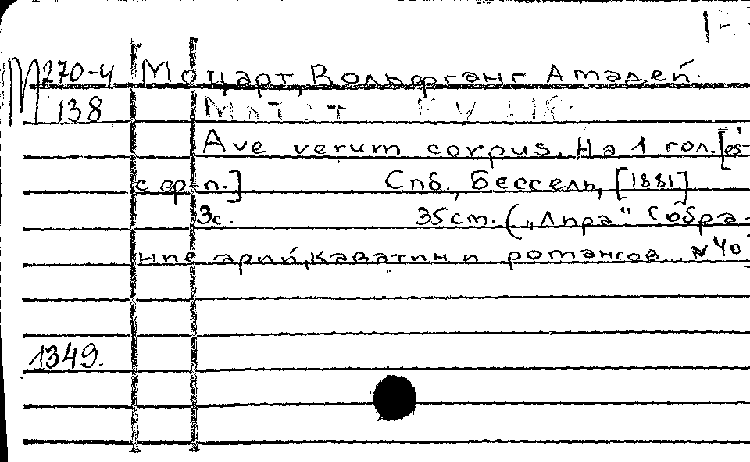 М270-4 Моцарт, Вольфганг Амадей.
138
Ave verum corpus. На 1 гол. [ос
с ор-п.] Спб., Бессель, [1881]
3с. 35 cm. („Лира" Собра-
ние арий, каватин и романсов №40
1349.